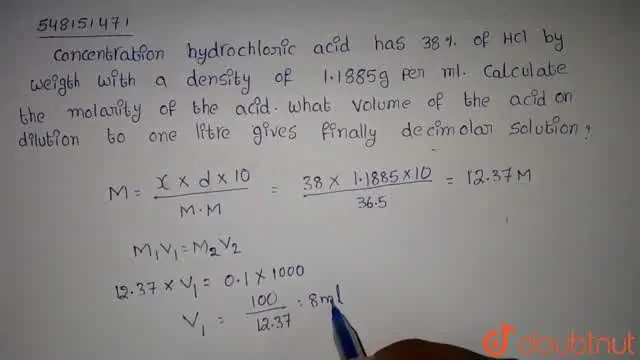 548151471
Concentration hydrochloric acid has 38% of HCl by
weigth with a density of 1.1885g per ml. Calculate
the molarity of the acid. What volume of the acid on
dilution to one litre gives finally decimolar solution?
M = x × d × 10 / M.M = 38 × 1.1885 × 10 / 36.5 = 12.37 M
M₁V₁ = M₂V₂
12.37 × V₁ = 0.1 × 1000
V₁ = 100 / 12.37 = 8ml
doubtnut